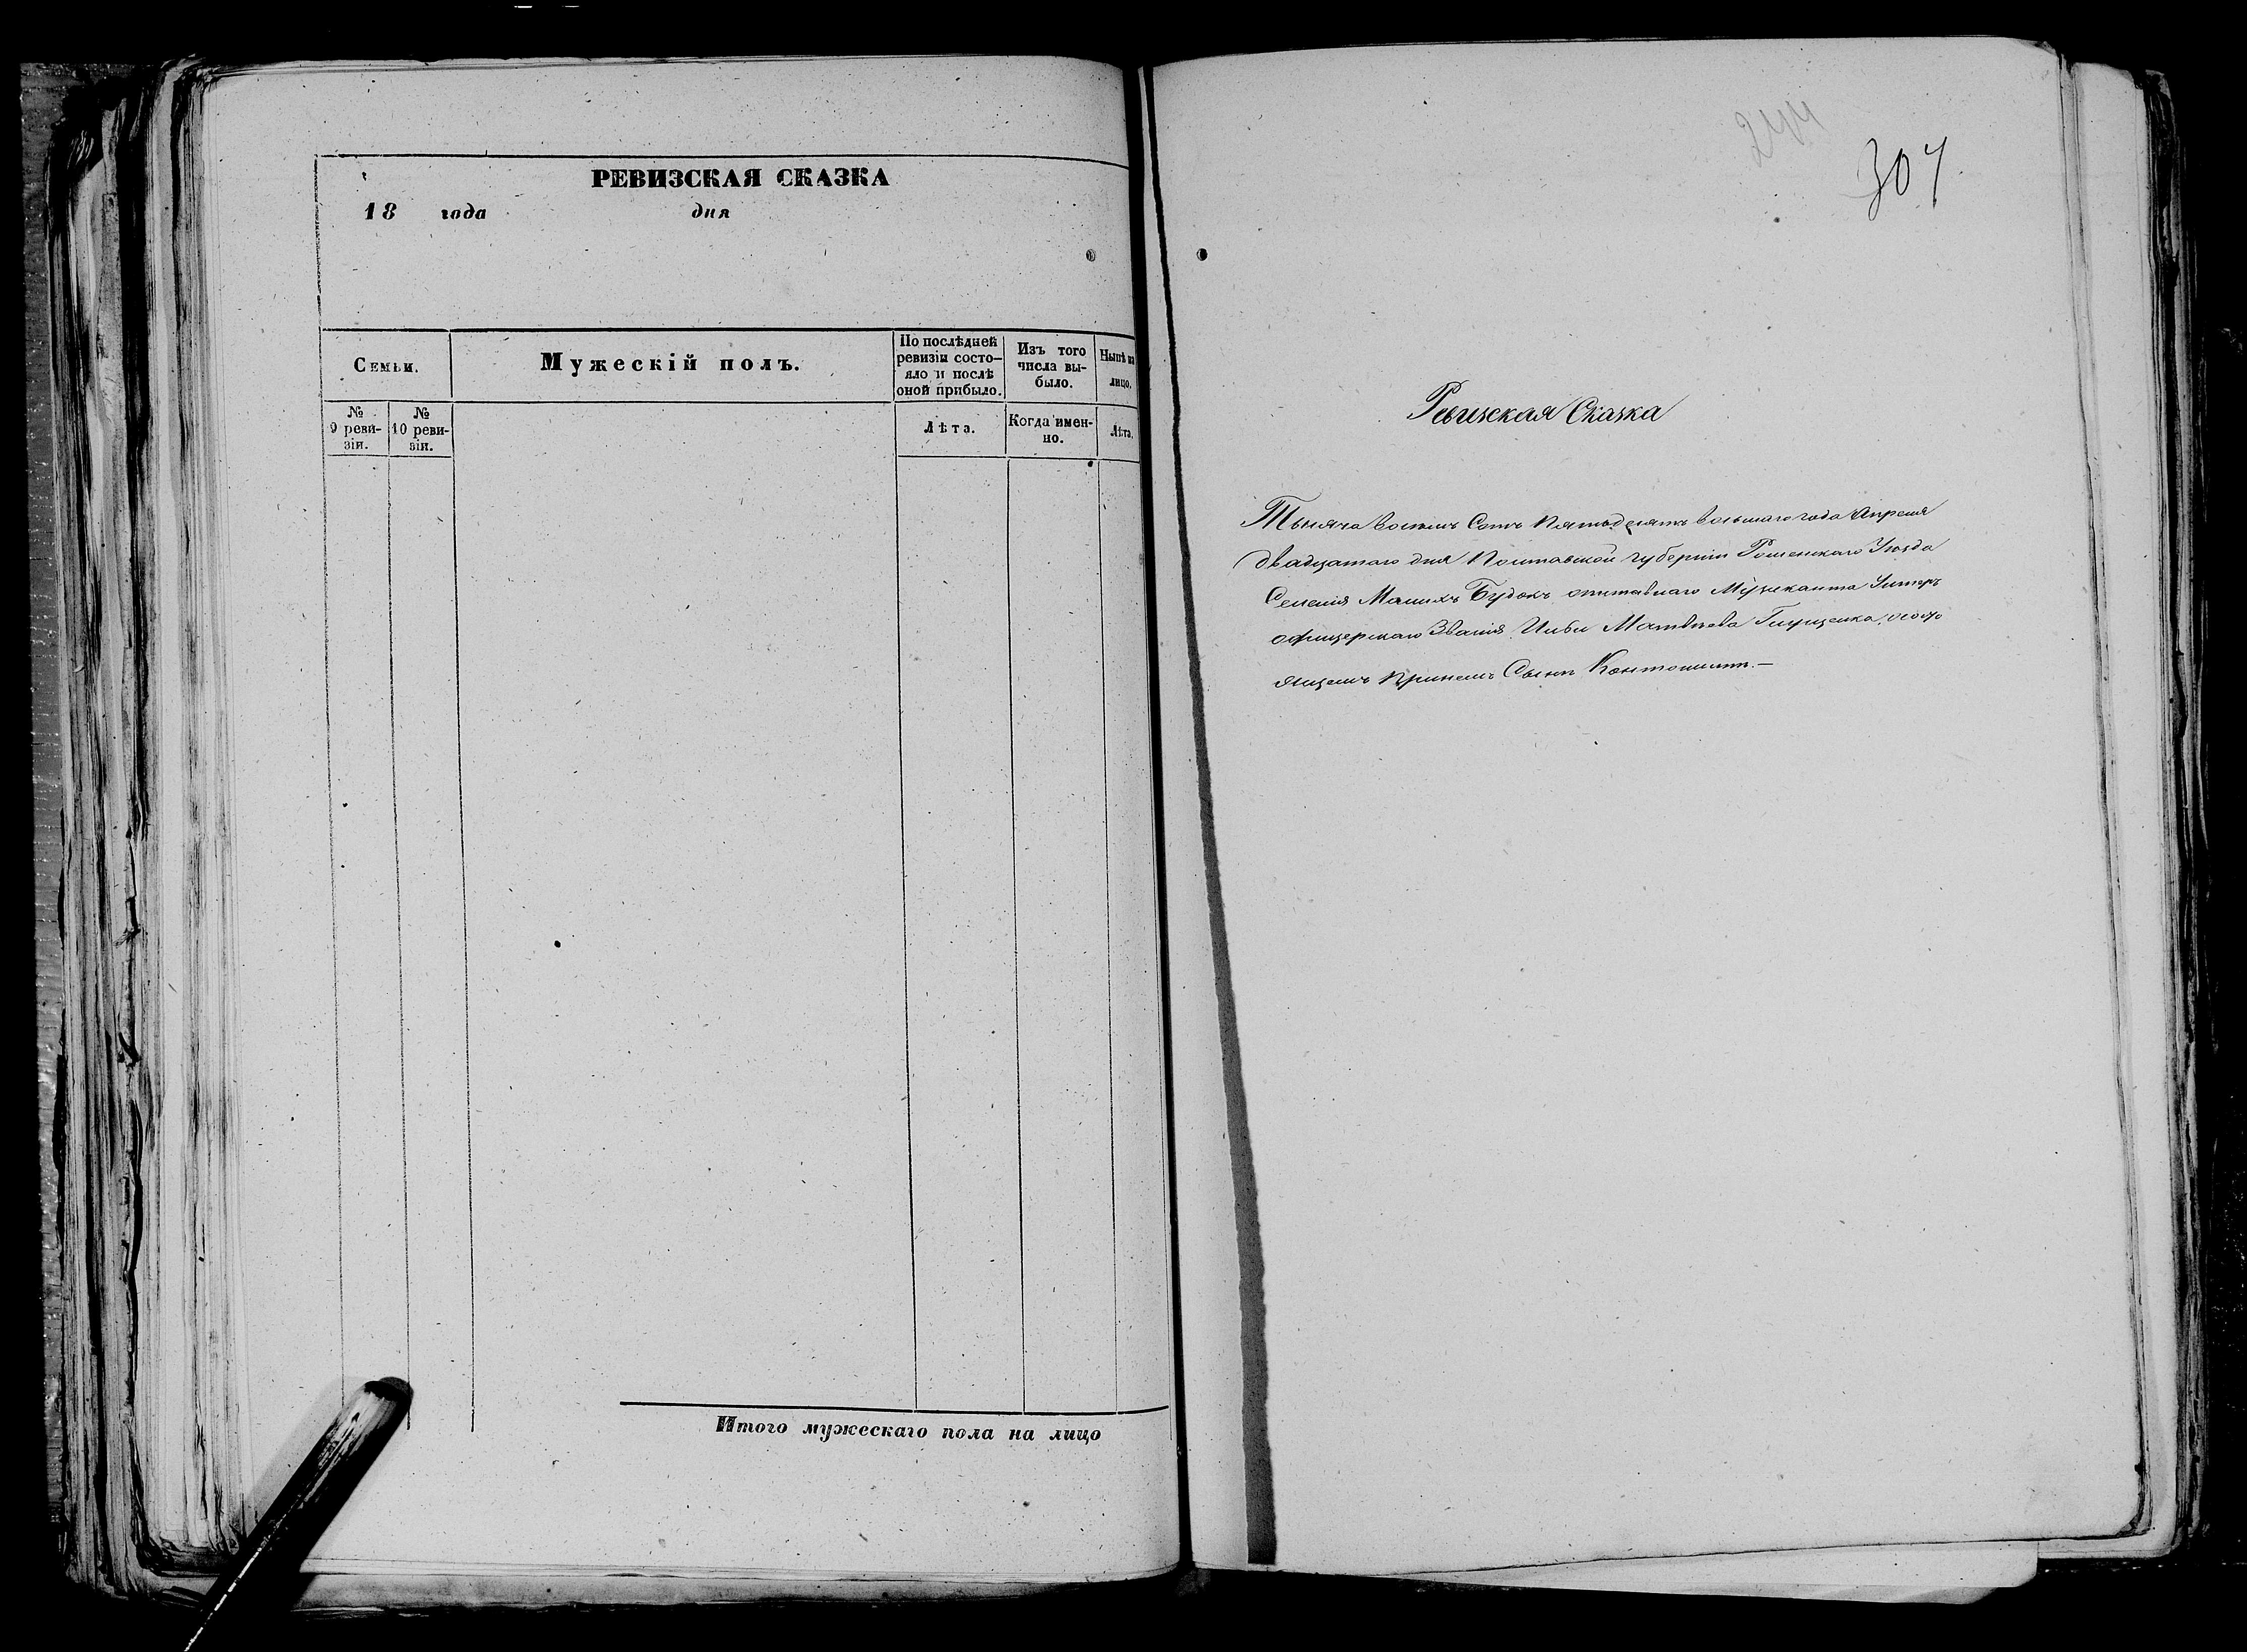 РЕВИЗСКАЯ СКАЗКА
18 года дня
Семьи.
Мужескій полъ.
По послѣдней ревизіи состо-
яло и послѣ
оной прибыло.
Изъ того
числа вы-
было.
Нынѣ на
лицо.
№
9 реви-
зіи.
№
10 реви-
зіи.
Лѣта.
Когда имен-
но.
Лѣта.
Итого мужескаго пола на лицо
244
307
Ревизская Сказка
Тысяча восемь Сотъ Пятьдесятъ восьмаго года Апреля
двадцатаго дня Полтавской губерніи Роменскаго Уезда
Селенія Малихъ Будокъ отставнаго Музиканта Унтеръ
офицерскаго Званія Ильи Матвѣева Глущенка, состо
ящемъ принемъ Сынѣ